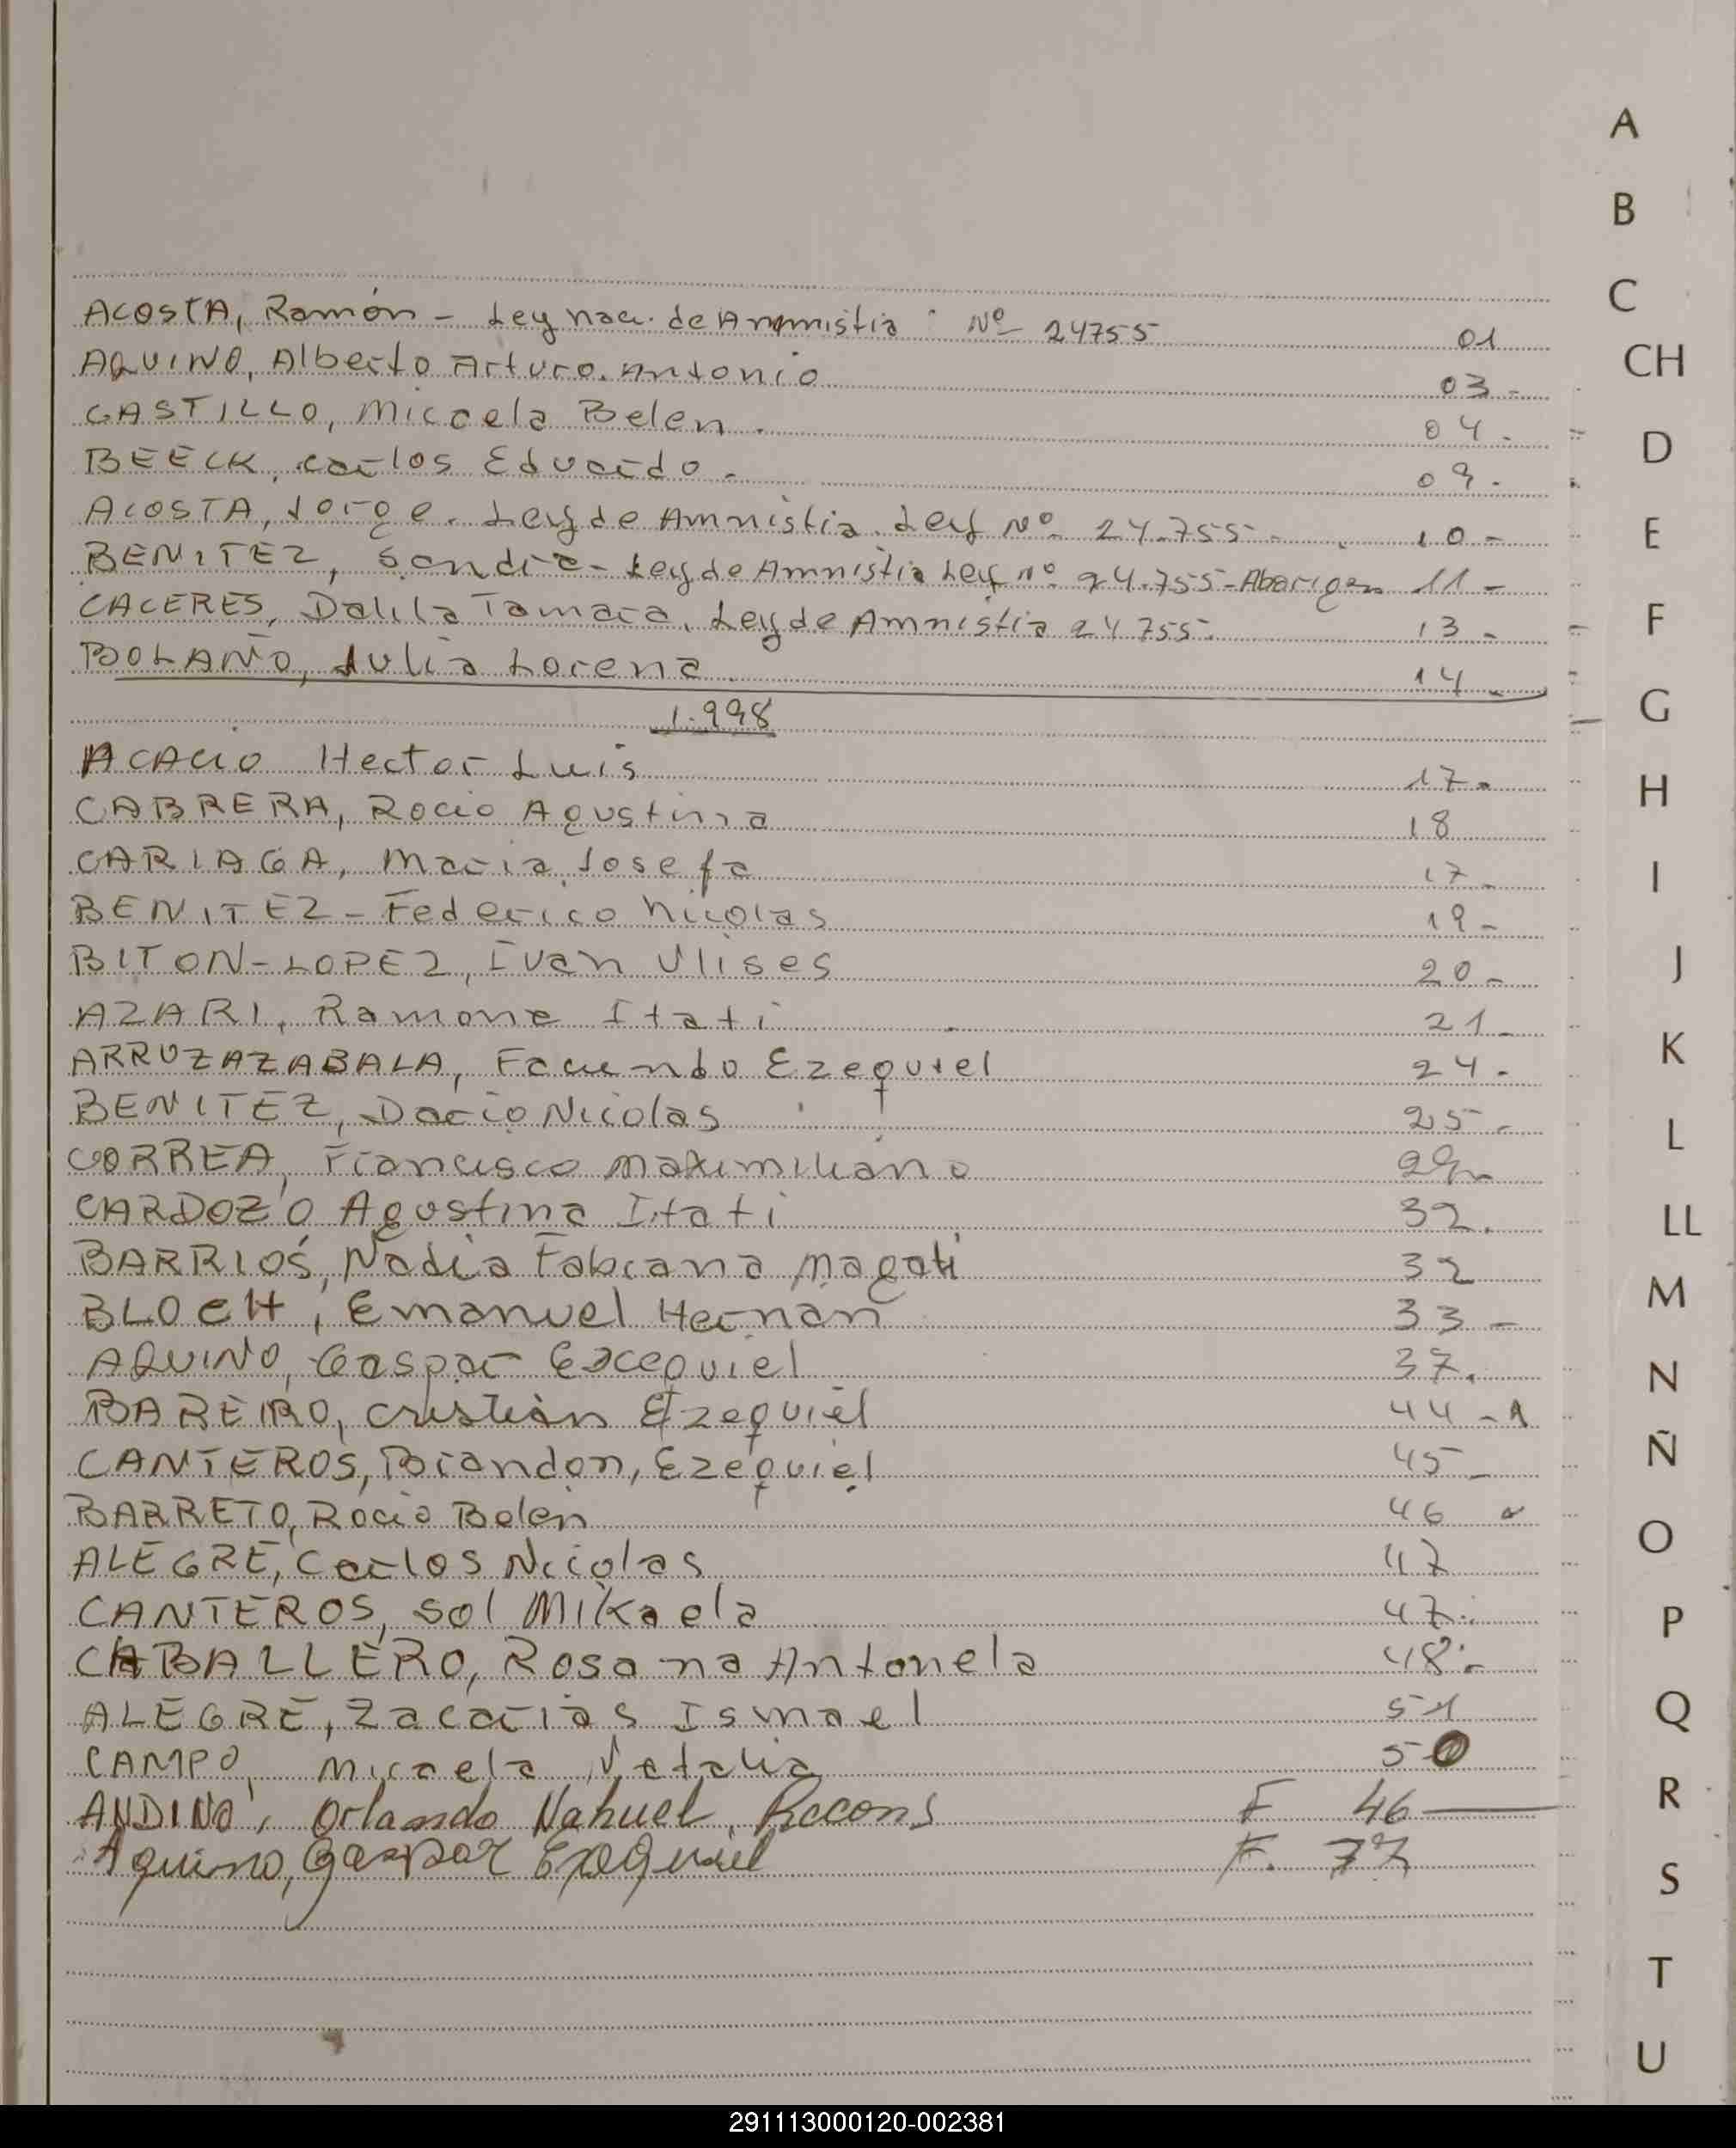 A
B
C
CH
D
E
F
G
H
I
J
K
L
LL
M
N
Ñ
O
P
Q
R
S
T
U
ACOSTA, Ramón - Ley nac. de Ammistia Nº 24755 01
AQUINO, Alberto Arturo. Antonio 03-
CASTILLO, Micaela Belen. 04.
BEECK, Carlos Eduardo. 09.
ACOSTA, Jorge. Ley de Amnistia. Ley Nº 24.755- 10-
BENITEZ, Sandra- Ley de Amnistia Ley nº 24.755-Aborigen 11-
CACERES, Dalila Tamara. Ley de Amnistia 24755. 13-
BOLAÑO, Julia Lorena 14-
1.998
ACACIO Hector Luis 17.
CABRERA, Rocio Agustina 18
CARIAGA, Maria Josefa 17-
BENITEZ- Federico Nicolas 19-
BITON-LOPEZ, Ivan Ulises 20-
AZARI, Ramona Itati 21-
ARRUZAZABALA, Facundo Ezequiel 24.
BENITEZ, Dario Nicolas 25-
CORREA, Francisco Maximiliano 29-
CARDOZO Agustina Itati 32.
BARRIOS, Nadia Fabiana Magali 32
BLOCH, Emanuel Hernán 33-
AQUINO, Gaspar Excequiel 37.
BAREIRO, Cristian Ezequiel 44-1
CANTEROS, Brandon, Ezequiel 45-
BARRETO, Rocio Belen 46
ALEGRE, Carlos Nicolas 47
CANTEROS, Sol Mikaela 47.
CABALLERO, Rosana Antonela 48.
ALEGRE, Zacarias Ismael 51
CAMPO, Micaela Natalia 50
ANDINO, Orlando Nahuel, Recons F 46
Aquino, Gaspar Exequiel F. 77
291113000120-002381